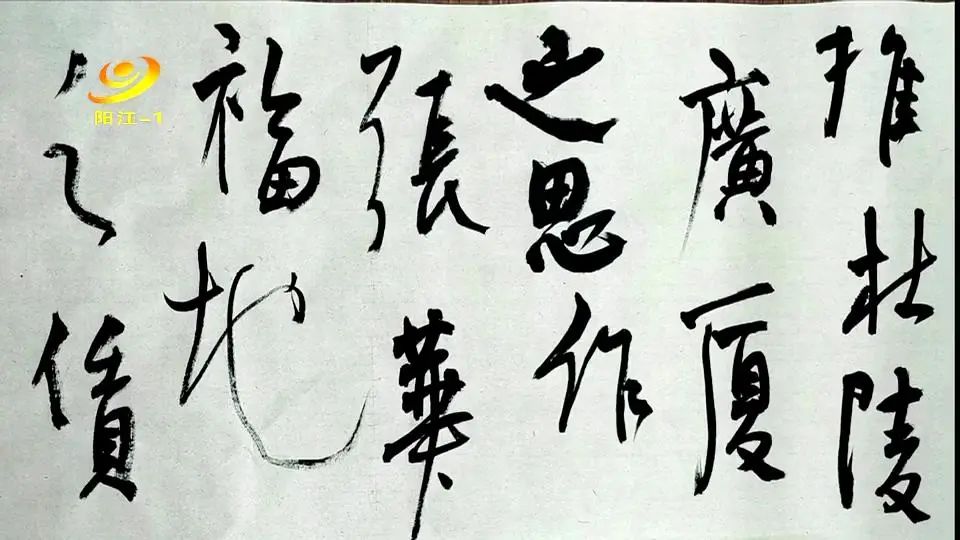 推杜陵
廣厦
之思作
張華
福地
之賃
阳江-1